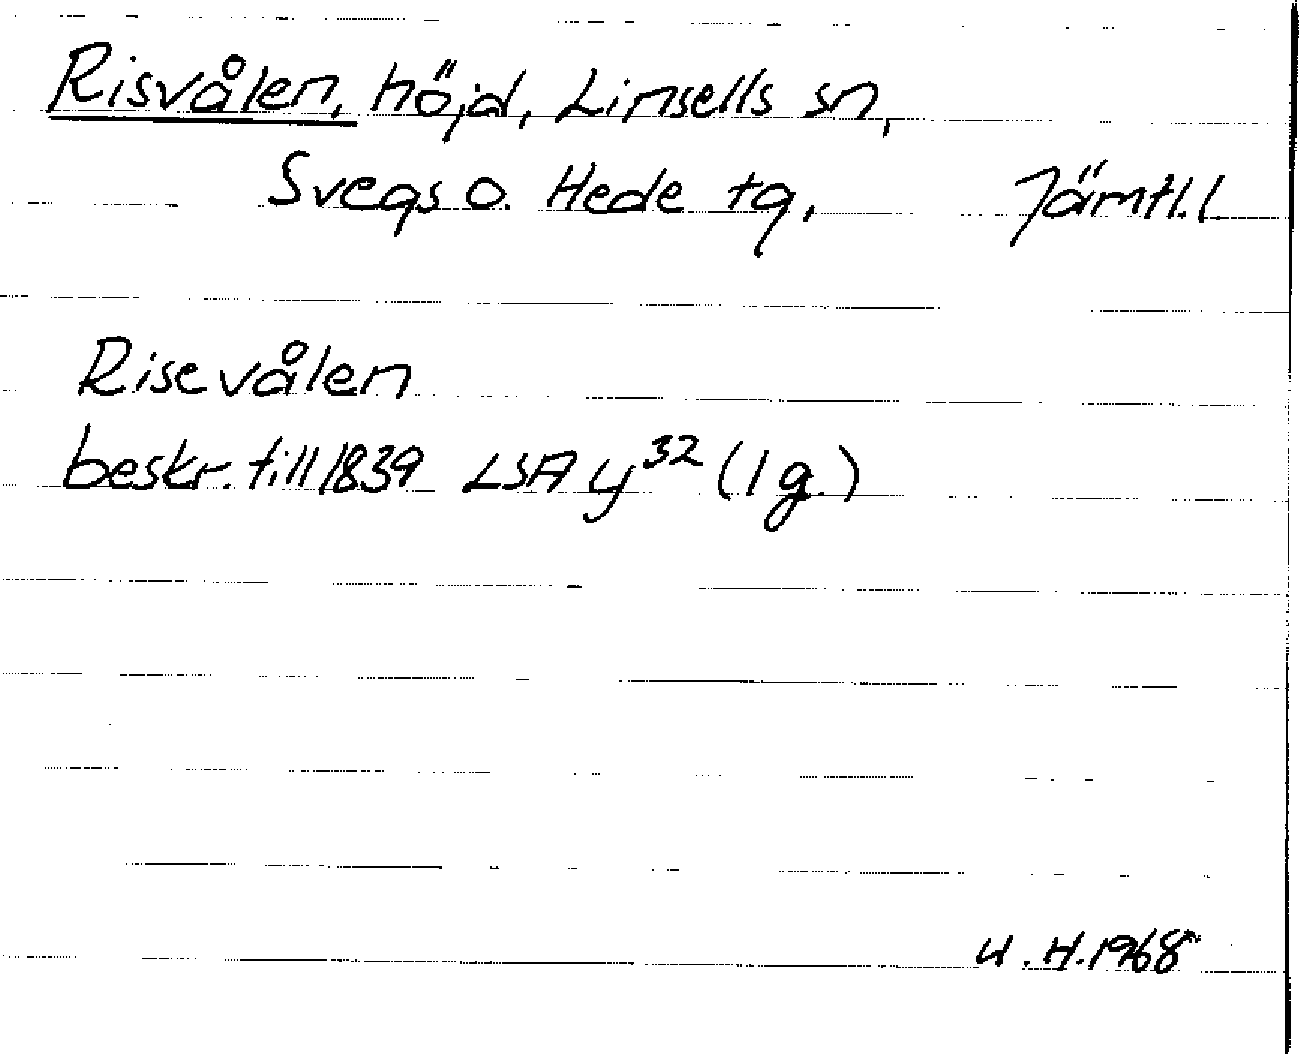 Risvålen, höjd, Linsells sn,
Svegs o. Hede tg, Jämtl. l.
Risevålen
beskr. till 1839 LSA y³² (1 g.)
U. H. 1968